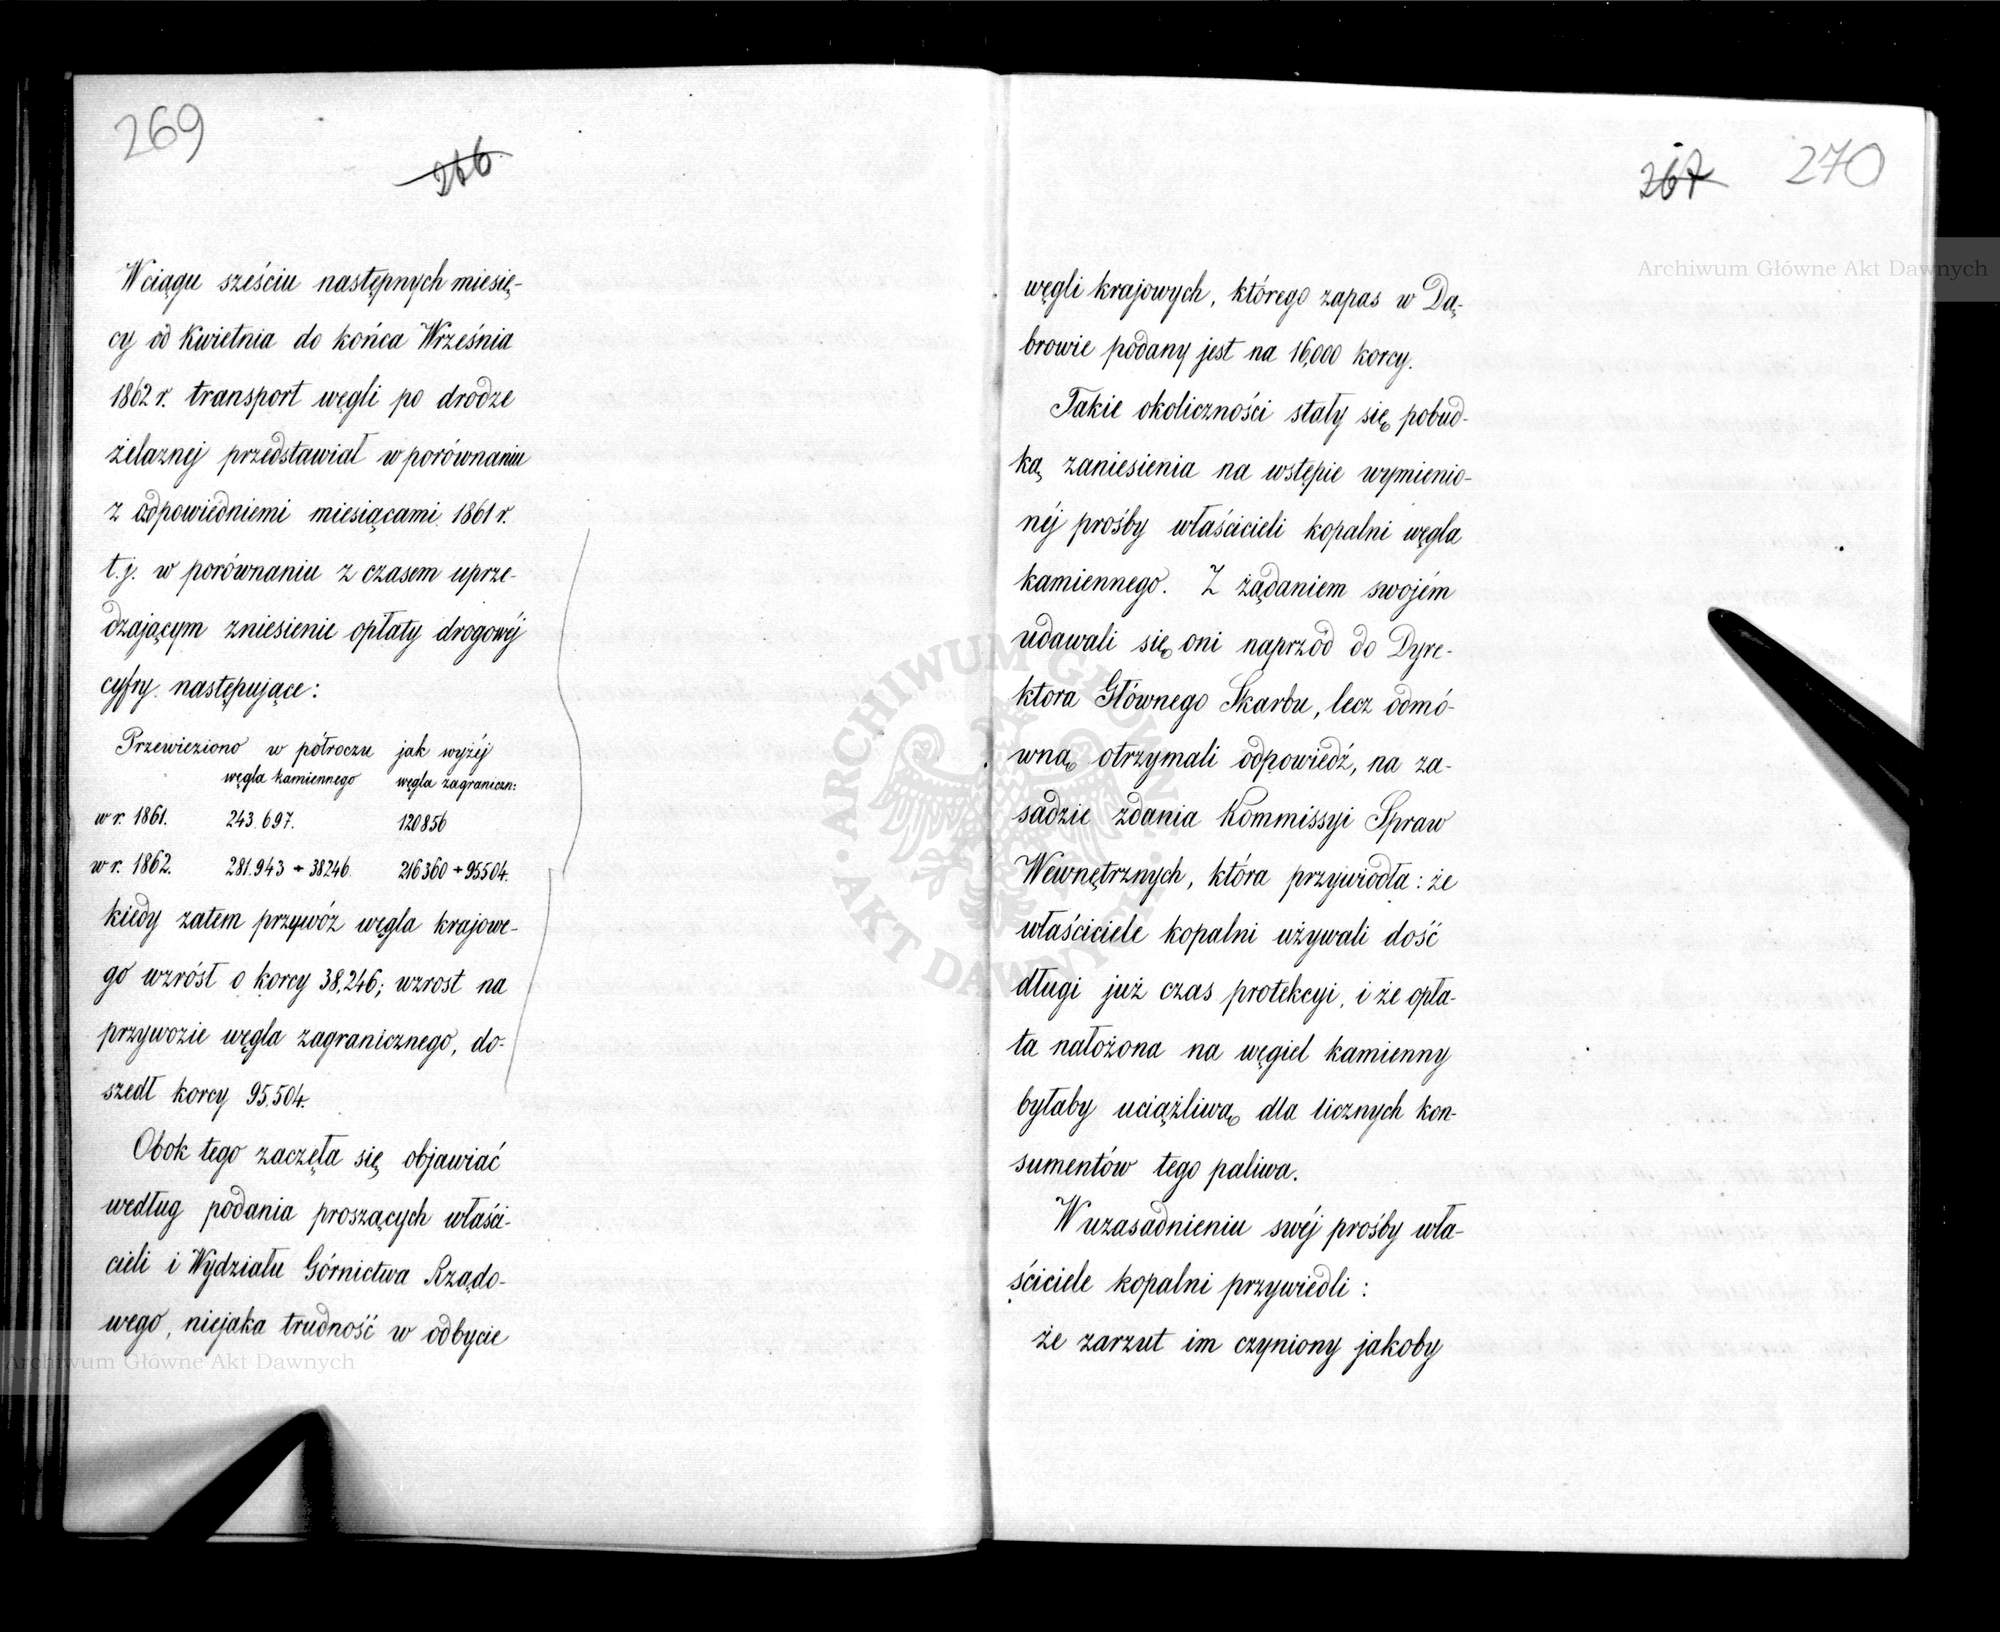 269
266
W ciągu sześciu następnych miesię-
cy od Kwietnia do końca Września
1862 r. transport węgli po drodze
żelaznej przedstawiał w porównaniu
z odpowiedniemi miesiącami 1861 r.
t.j. w porównaniu z czasem uprze-
dzającym zniesienie opłaty drogowéj
cyfry następujące:
Przewieziono w półroczu jak wyżéj
węgla kamiennego węgla zagraniczn:
w r. 1861. 243.697. 120856
w r. 1862. 281.943 + 38246. 216360 + 95504.
kiedy zatem przywóz węgla krajowe-
go wzróst o korcy 38,246; wzrost na
przywozie węgla zagranicznego, do-
szedł korcy 95.504.
Obok tego zaczęła się objawiać
według podania proszących właści-
cieli i Wydziału Górnictwa Rządo-
wego, niejaka trudność w odbycie
267 270
węgli krajowych, którego zapas w Dą-
browie podany jest na 16,000 korcy.
Takie okoliczności stały się pobud-
ką zaniesienia na wstępie wymienio-
néj prośby właścicieli kopalni węgla
kamiennego. Z żądaniem swojém
udawali się oni naprzód do Dyre-
ktora Głównego Skarbu, lecz odmó-
wną otrzymali odpowiedź, na za-
sadzie zdania Kommissyi Spraw
Wewnętrznych, która przywiodła: że
właściciele kopalni używali dość
długi już czas protekcyi, i że opła-
ta nałożona na węgiel kamienny
byłaby uciążliwą dla licznych kon-
sumentów tego paliwa.
W uzasadnieniu swéj prośby wła-
ściciele kopalni przywiedli:
że zarzut im czyniony jakoby
Archiwum Główne Akt Dawnych
Archiwum Główne Akt Dawnych
ARCHIWUM GŁÓWNE
AKT DAWNYCH